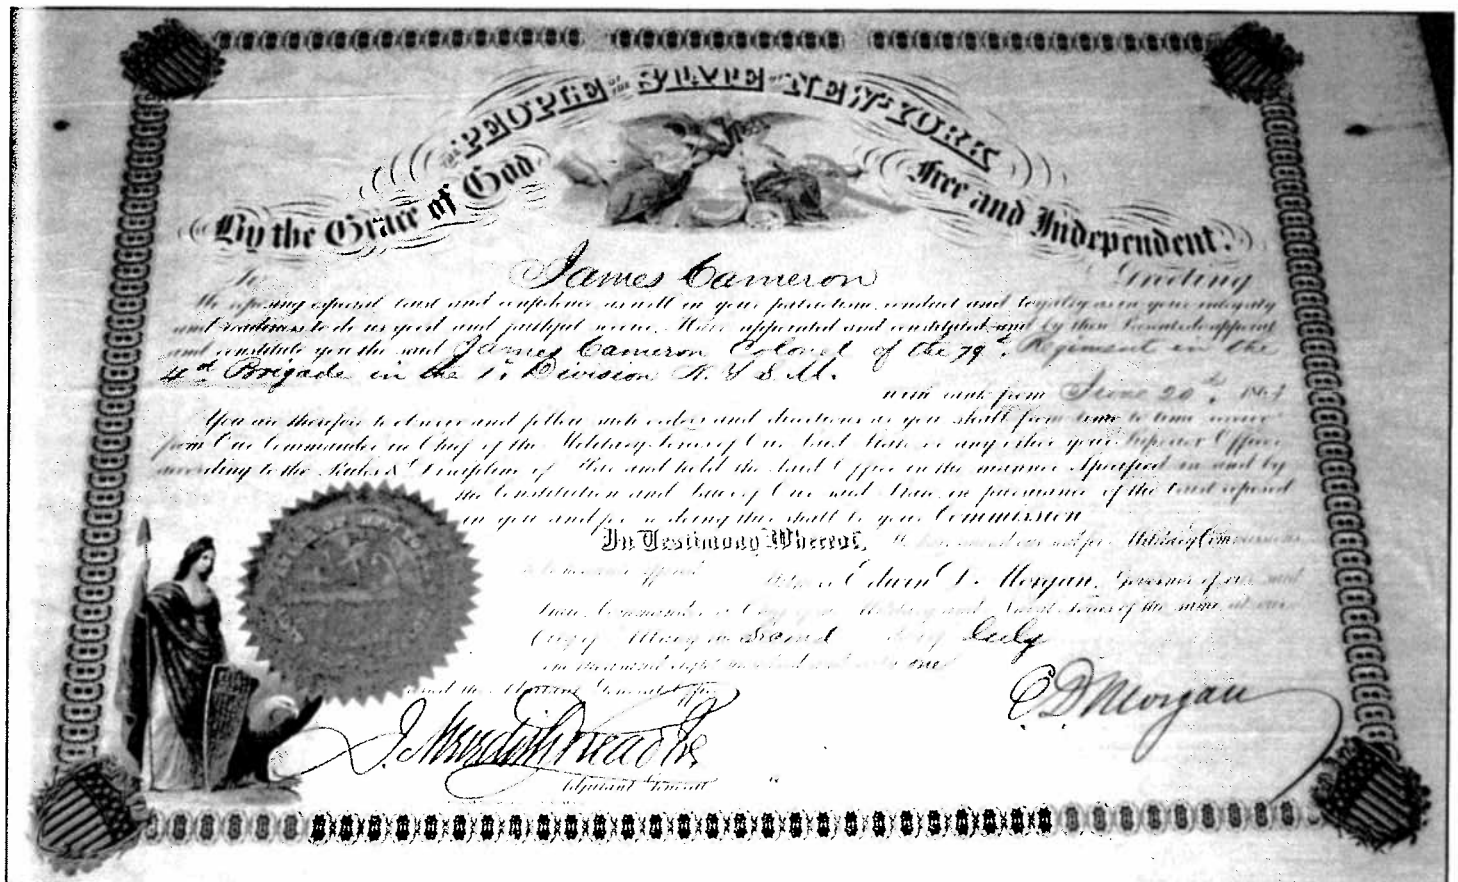 THE PEOPLE OF THE STATE OF NEW YORK
By the Grace of God Free and Independent.
To James Cameron Greeting
We reposing especial trust and confidence as well in your patriotism, conduct and loyalty as in your integrity
and readiness to do us good and faithful service, Have appointed and constituted and by these Presents do appoint
and constitute you the said James Cameron Colonel of the 79th Regiment in the
4th Brigade in the 1st Division N.Y.S.M.
with rank from June 20th, 186
You are therefore to observe and follow such orders and directions as you shall from time to time receive
from Our Commander in Chief of the Military forces of Our Said State or any other your Superior Officer
according to the Rules & Discipline of War and hold the Said Office in the manner Specified in and by
the Constitution and Laws of Our said State, in pursuance of the trust reposed
in you and for so doing this shall be your Commission
In Testimony Whereof, We have caused our seal for Military Commissions
to be hereunto affixed Witness Edwin D. Morgan, Governor of our said
State Commander in Chief of the Military and Naval forces of the same at our
City of Albany the Second day of July
one thousand eight hundred and sixty one
Adjutant General's Office
J. Meredith Read Jr.
Adjutant General
E. D. Morgan